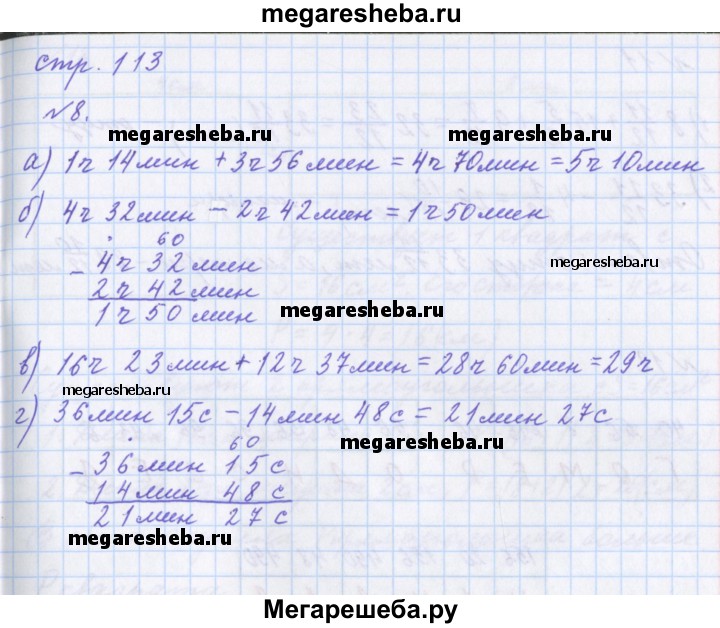 megaresheba.ru
стр. 113
№8.
megaresheba.ru megaresheba.ru
а) 1ч 14мин + 3ч 56мин = 4ч 70мин = 5ч 10мин
б) 4ч 32мин − 2ч 42мин = 1ч 50мин
. 60
− 4ч 32мин
megaresheba.ru
2ч 42мин
1ч 50мин
megaresheba.ru
в) 16ч 23мин + 12ч 37мин = 28ч 60мин = 29ч
megaresheba.ru
г) 36мин 15с − 14мин 48с = 21мин 27с
. 60
megaresheba.ru
− 36мин 15с
14мин 48с
21мин 27с
megaresheba.ru
Мегарешеба.ру